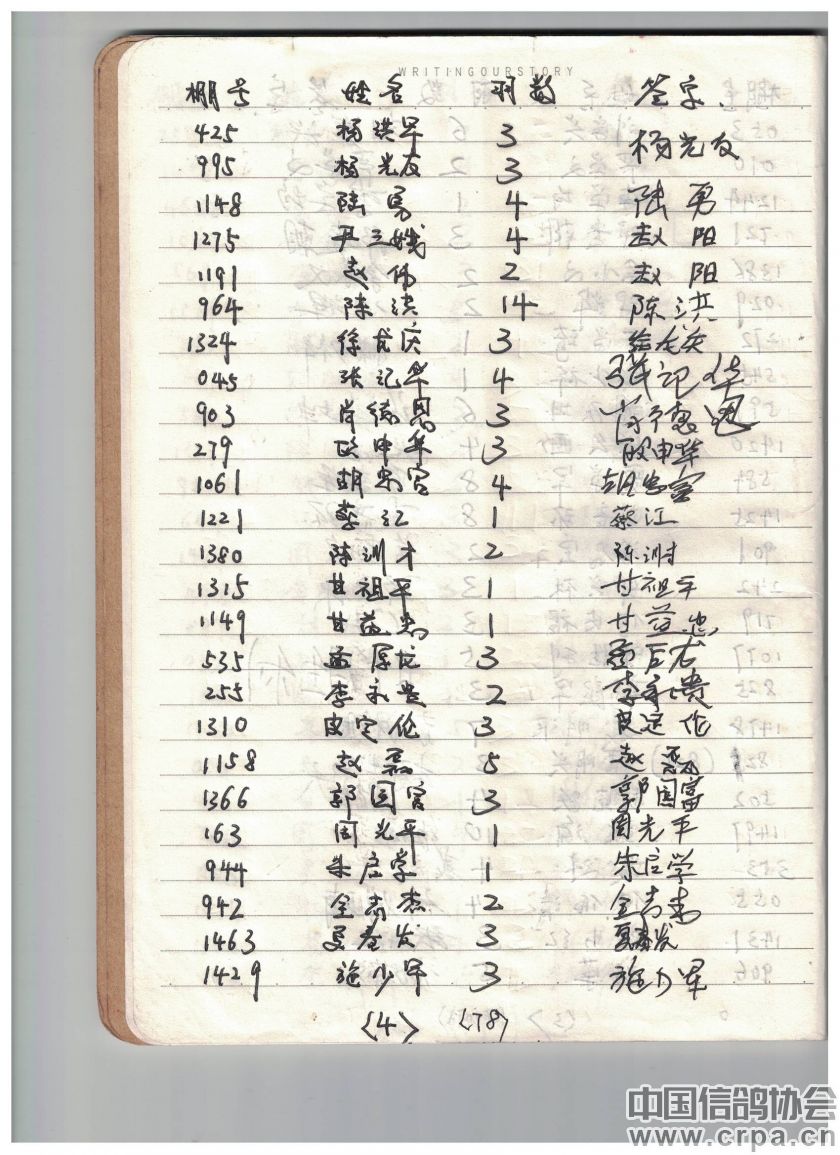 WRITINGOURSTORY
棚号 姓名 羽数 签字
425 杨洪军 3
995 杨光友 3 杨光友
1148 陆勇 4 陆勇
1275 尹兰娥 4 赵阳
1191 赵伟 2 赵阳
964 陈洪 14 陈洪
1324 徐龙庆 3
045 张记华 4 张记华
903 3
279 欧申华 3 欧申华
1061 胡忠富 4 胡忠富
1221 蔡江 1 蔡江
1380 陈训才 2 陈训才
1315 甘祖平 1 甘祖平
1149 甘益忠 1 甘益忠
535 孟厚龙 3
255 李永贵 2 李永贵
1310 皮定伦 3
1158 赵磊 5 赵磊
1366 郭国富 3 郭国富
163 周光平 1 周光平
944 朱启学 1 朱启学
942 全志杰 2
1463 夏春发 3 夏春发
1429 施少军 3 施少军
〈4〉 〈78〉
中国信鸽协会
www.crpa.cn